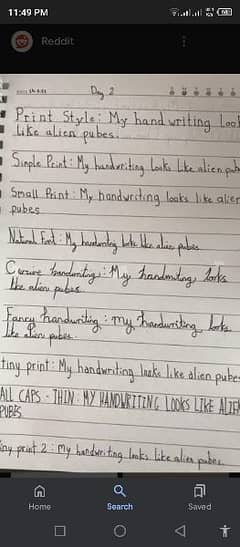 11:49 PM
Reddit
Day 2
Print Style: My handwriting Look
like alien pubes.
Simple Print: My handwriting Looks Like alien pub
Small Print: My handwriting looks like alien
pubes
Natural Font: My handwriting looks like alien pubes.
Cursive handwriting: My handwriting looks
like alien pubes
Fancy handwriting: my handwriting looks
like alien pubes.
tiny print: My handwriting looks like alien pubes
ALL CAPS - THIN: MY HANDWRITING LOOKS LIKE ALIEN
PUBES
iny print 2: my handwriting looks like alien pubes.
Home
Search
Saved